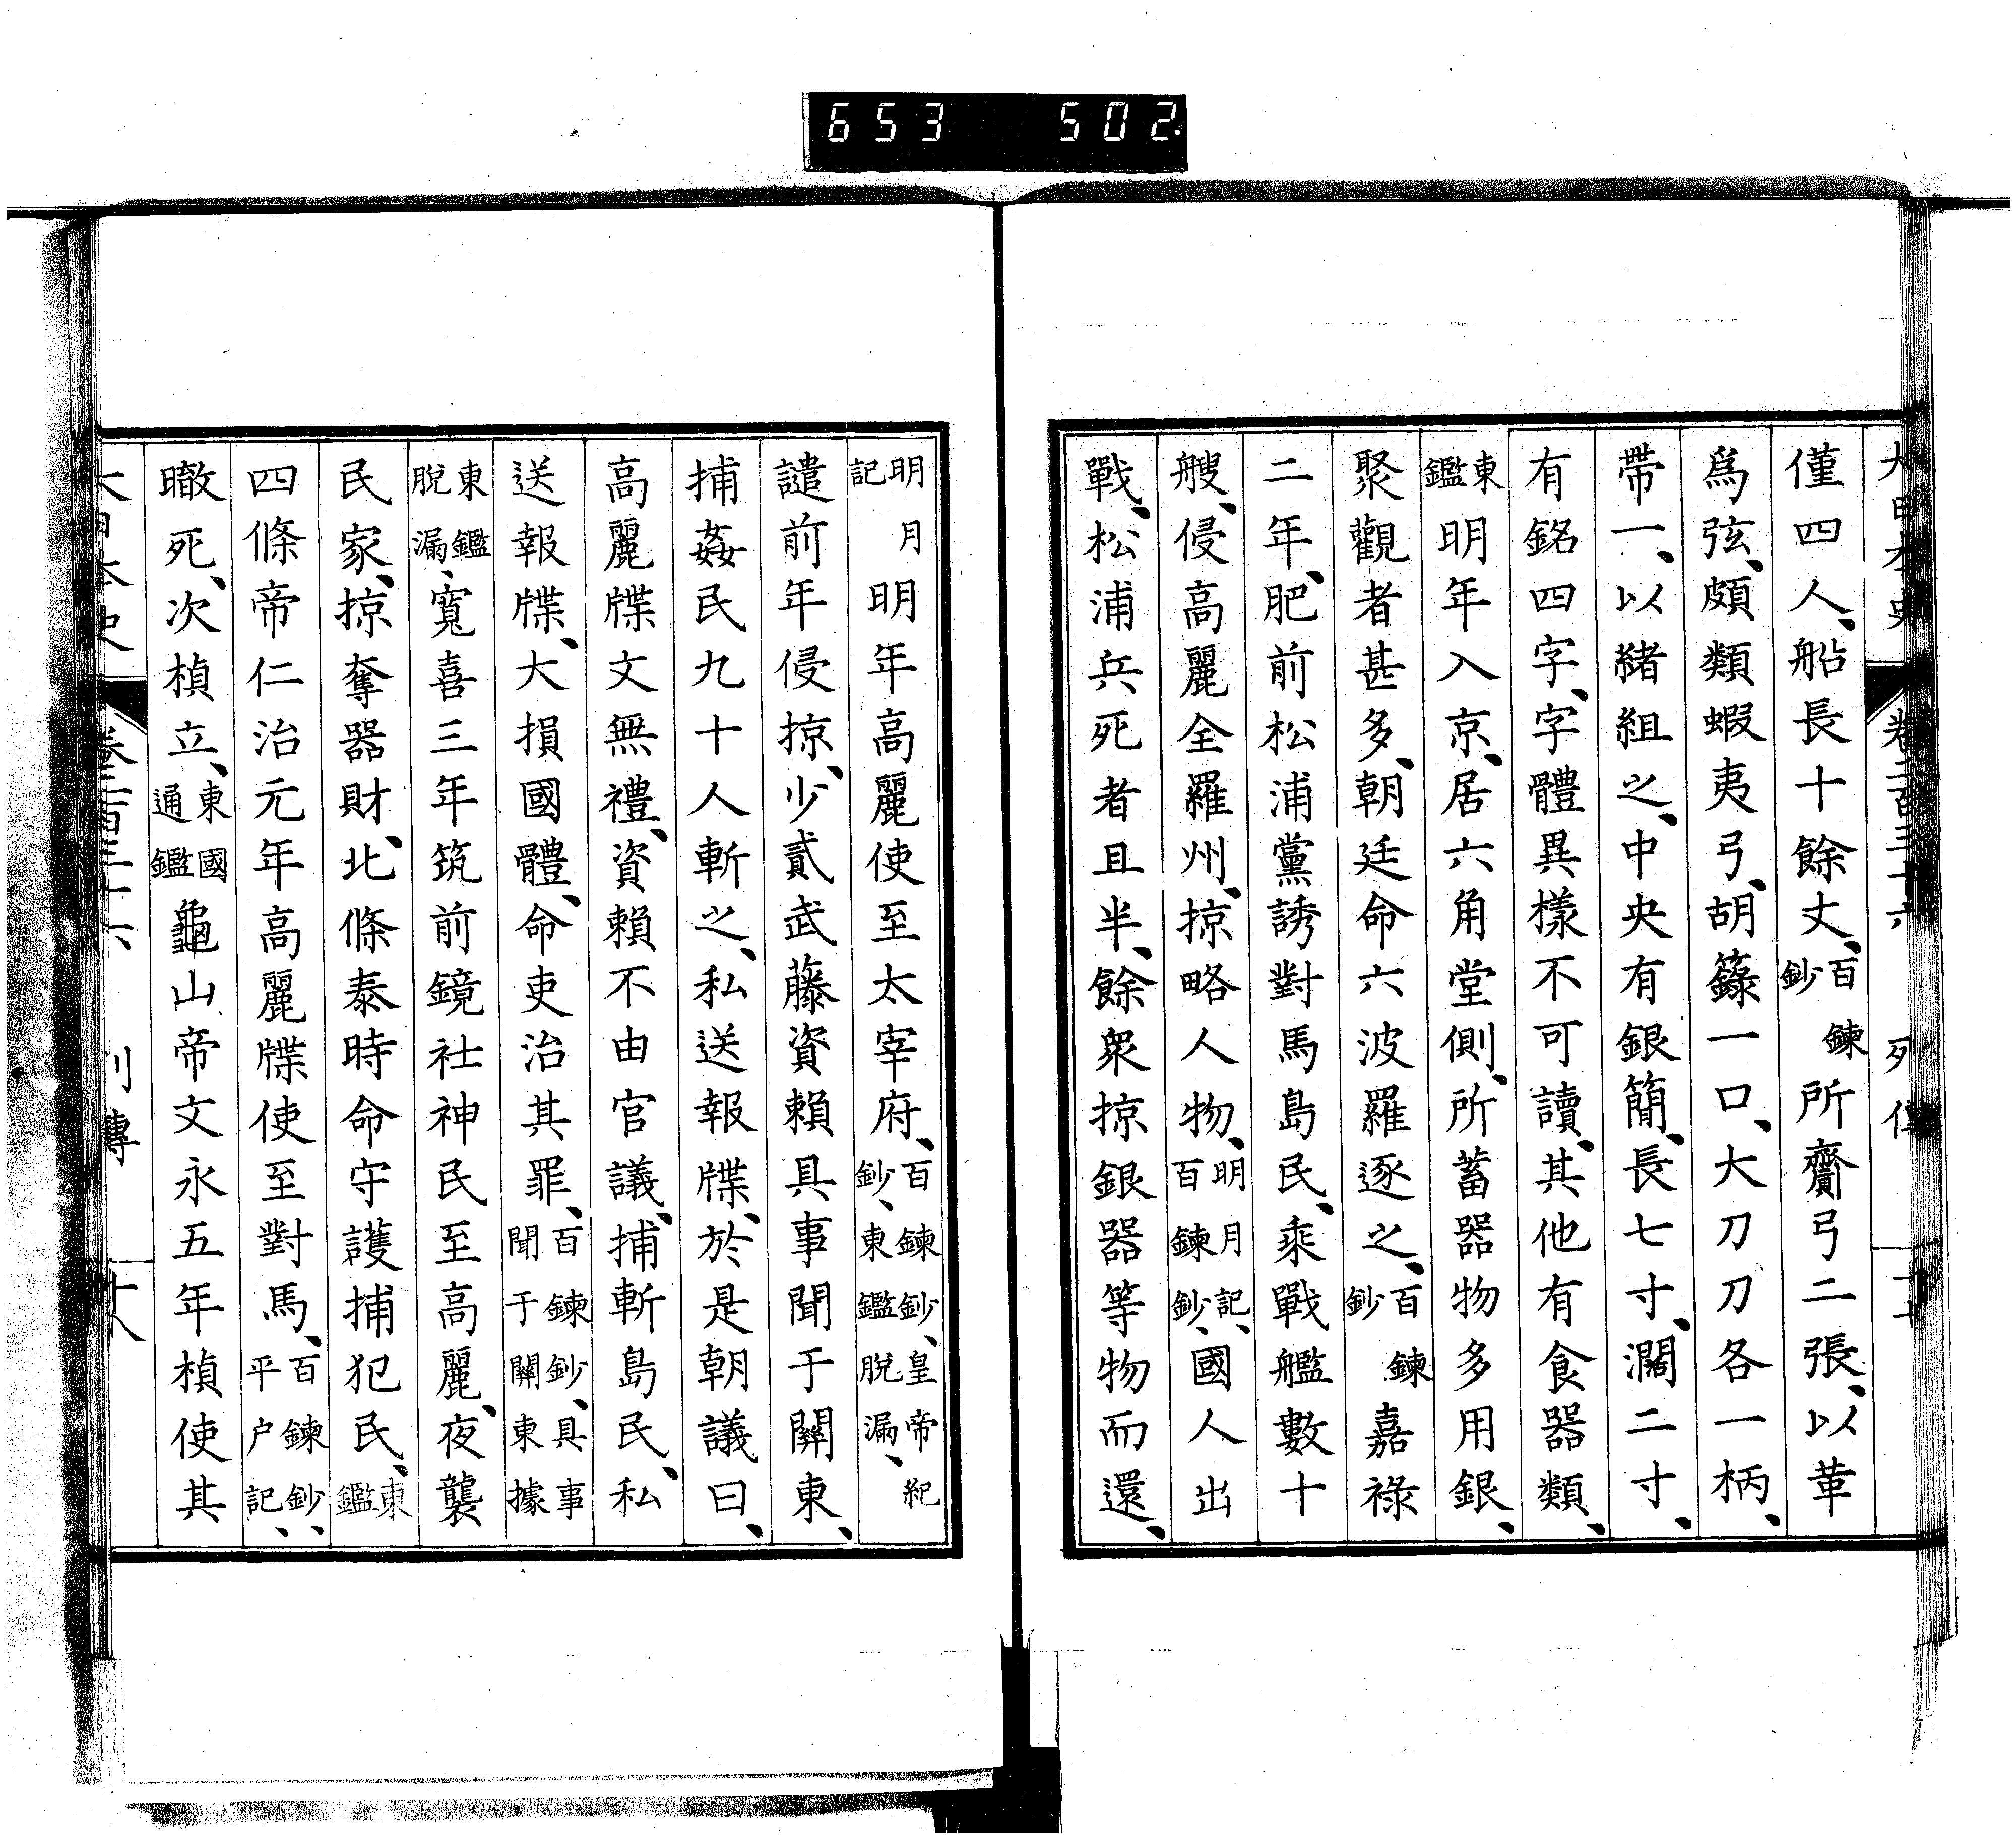 653 502.
大日本史 卷二百三十六 列傳 十七
僅四人、船長十餘丈、百鍊鈔所齎弓二張、以革
爲弦、頗類蝦夷弓、胡籙一口、大刀刀各一柄、
帶一、以緒組之、中央有銀簡、長七寸、濶二寸、
有銘四字、字體異樣不可讀、其他有食器類、
東鑑明年入京、居六角堂側、所蓄器物多用銀、
聚觀者甚多、朝廷命六波羅逐之、百鍊鈔嘉祿
二年、肥前松浦黨誘對馬島民、乘戰艦數十
艘、侵高麗全羅州、掠略人物、明月記、百鍊鈔、國人出
戰、松浦兵死者且半、餘衆掠銀器等物而還、
明月記明年高麗使至太宰府、百鍊鈔、皇帝紀鈔、東鑑脫漏、
譴前年侵掠、少貳武藤資賴具事聞于關東、
捕姦民九十人斬之、私送報牒、於是朝議曰、
高麗牒文無禮、資賴不由官議、捕斬島民、私
送報牒、大損國體、命吏治其罪、百鍊鈔、具事聞于關東據
東鑑脫漏、寬喜三年筑前鏡社神民至高麗、夜襲
民家、掠奪器財、北條泰時命守護捕犯民、東鑑
四條帝仁治元年高麗牒使至對馬、百鍊鈔、平戶記、
㬚死、次楨立、東國通鑑龜山帝文永五年楨使其
大日本史 卷二百三十六 列傳 十八